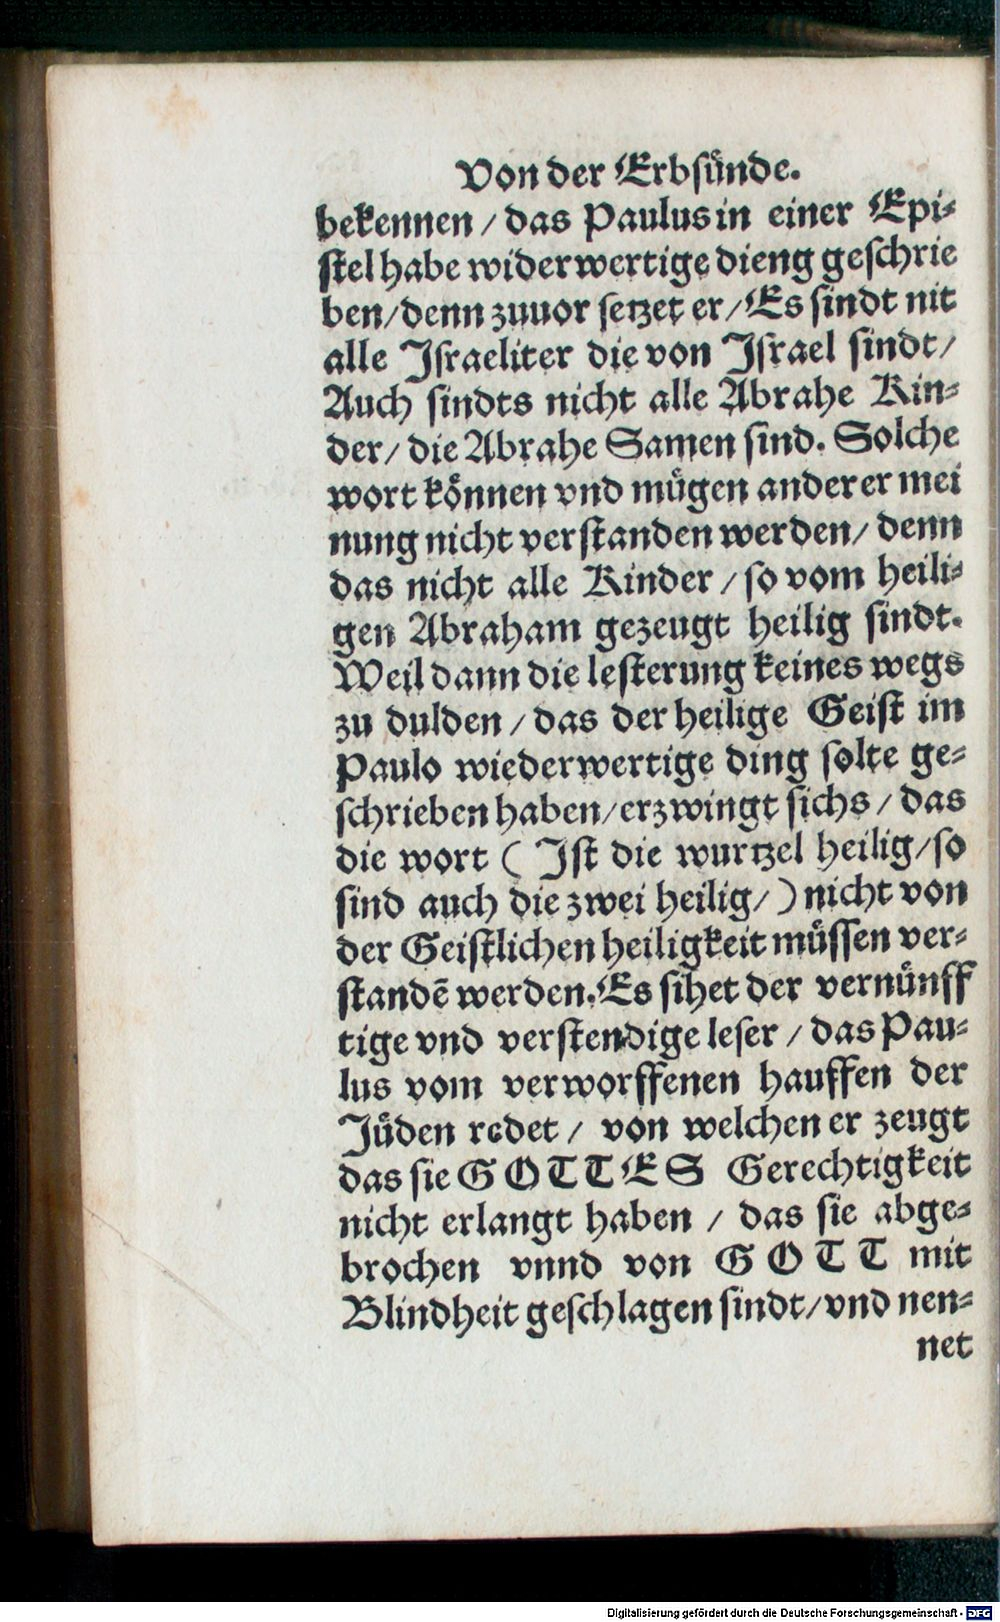 Von der Erbsünde.
bekennen / das Paulus in einer Epi-
stel habe widerwertige dieng geschrie
ben/denn zuuor setzet er/Es sindt nit
alle Israeliter die von Israel sindt/
Auch sindts nicht alle Abrahe Kin-
der/ die Abrahe Samen sind. Solche
wort können vnd mügen anderer mei
nung nicht verstanden werden/ denn
das nicht alle Kinder / so vom heili-
gen Abraham gezeugt heilig sindt.
Weil dann die lesterung keines wegs
zu dulden / das der heilige Geist im
Paulo wiederwertige ding solte ge-
schrieben haben/erzwingt sichs / das
die wort ( Ist die wurtzel heilig/so
sind auch die zwei heilig/) nicht von
der Geistlichen heiligkeit müssen ver-
standē werden. Es sihet der vernünff
tige vnd verstendige leser / das Pau-
lus vom verworffenen hauffen der
Jüden redet / von welchen er zeugt
das sie GOTTES Gerechtigkeit
nicht erlangt haben / das sie abge-
brochen vnnd von GOTT mit
Blindheit geschlagen sindt/vnd nen-
net
Digitalisierung gefördert durch die Deutsche Forschungsgemeinschaft - DFG